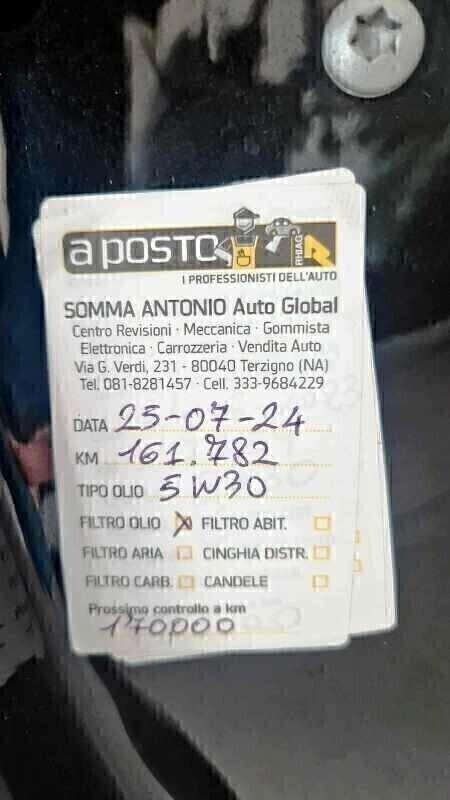 a posto
RHIAG
I PROFESSIONISTI DELL'AUTO
SOMMA ANTONIO Auto Global
Centro Revisioni · Meccanica · Gommista
Elettronica · Carrozzeria · Vendita Auto
Via G. Verdi, 231 - 80040 Terzigno (NA)
Tel. 081-8281457 · Cell. 333-9684229
DATA 25-07-24
KM 161.782
TIPO OLIO 5W30
FILTRO OLIO X FILTRO ABIT.
FILTRO ARIA CINGHIA DISTR.
FILTRO CARB. CANDELE
Prossimo controllo a km
170000